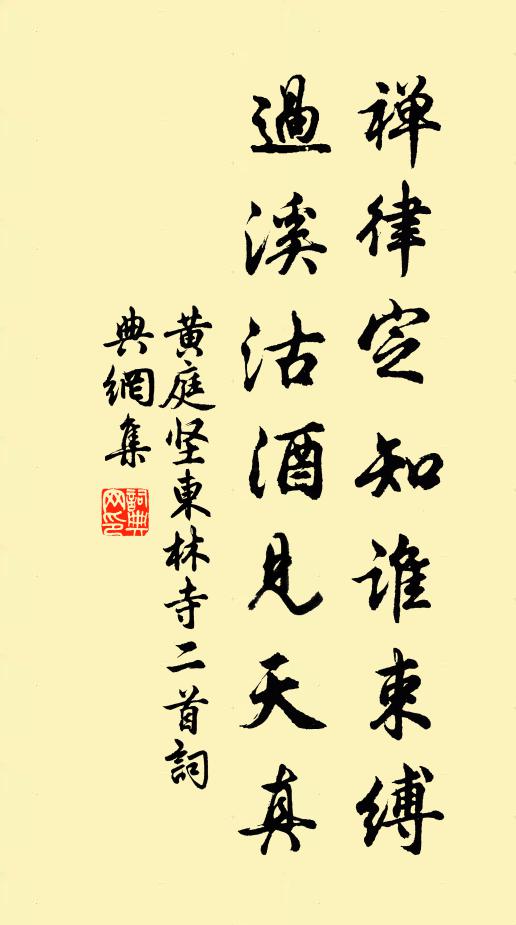 禅律定知谁束缚
過溪沽酒見天真
黄庭坚東林寺二首詞
典網集
詞典網印